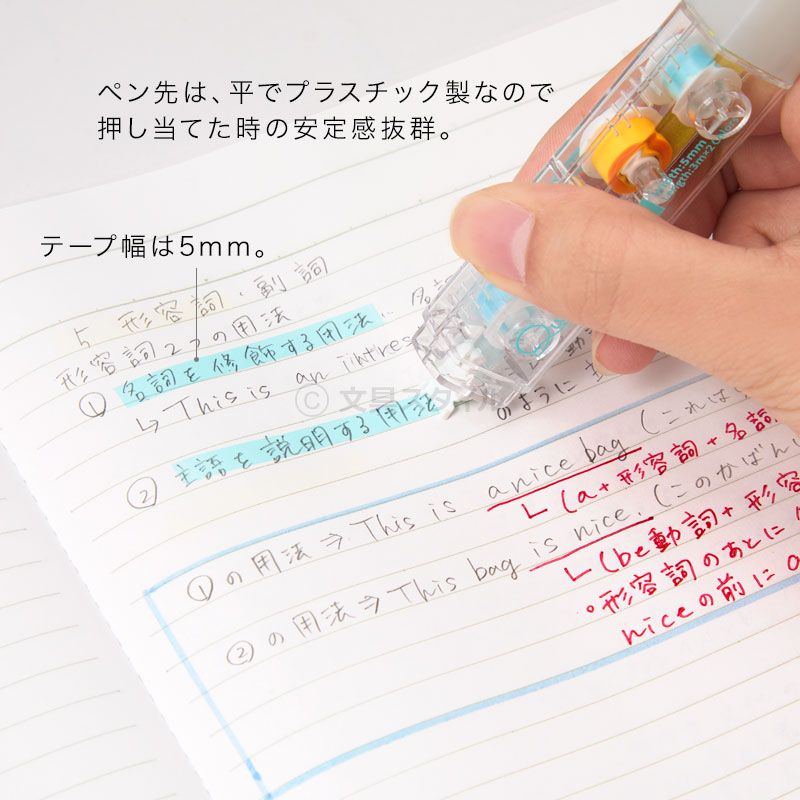 ペン先は、平でプラスチック製なので
押し当てた時の安定感抜群。
テープ幅は5mm。
5 形容詞・副詞
形容詞2つの用法
① 名詞を修飾する用法
↳ This is an intres
② 主語を説明する用法
のように
© 文具スタイル
①の用法⇒This is a nice bag (これは
↳(a+形容詞+名詞
②の用法⇒This bag is nice. (このかばん
↳(be動詞+形容
形容詞のあとに
niceの前に a
width:5mm
Length:3m×2